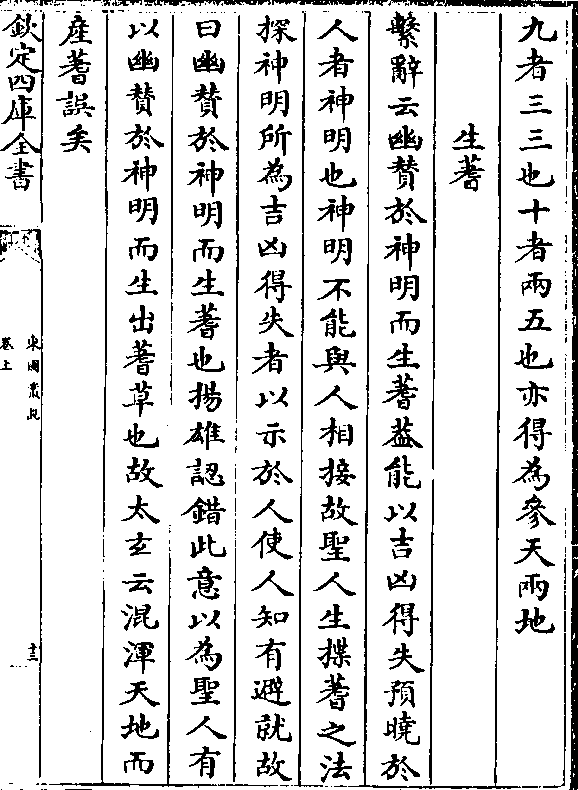 九者三三也十者兩五也亦得為參天兩地
生蓍
繫辭云幽賛於神明而生蓍葢能以吉凶得失預曉於
人者神明也神明不能與人相接故聖人生揲蓍之法
探神明所為吉凶得失者以示於人使人知有避就故
曰幽賛於神明而生蓍也揚雄認錯此意以為聖人有
以幽賛於神明而生出蓍草也故太𤣥云混渾天地而
産蓍誤矣
欽定四庫全書
東園叢說
卷上
十三